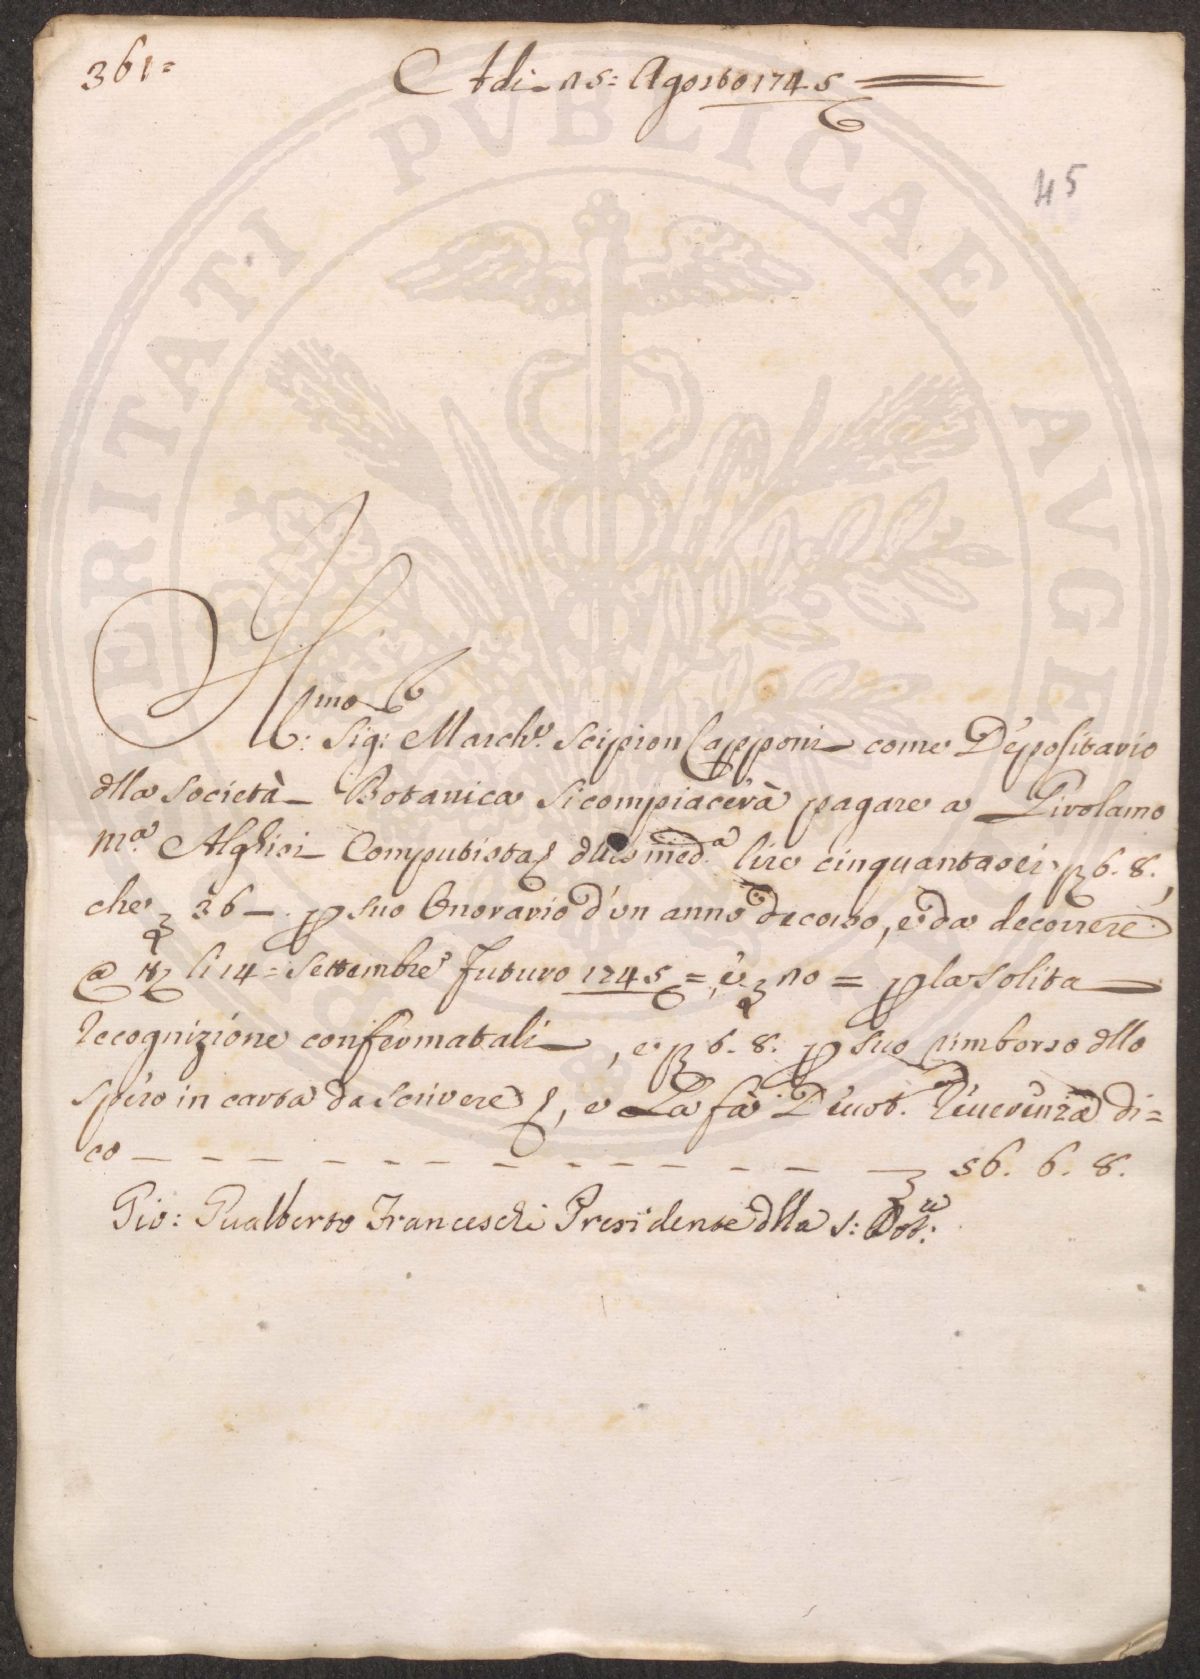 361=
Adi 15: Agosto 1745
45
Ill:mo Sig: March.e Scipion Capponi come Depositario
dlla Società Botanica si compiacerà pagare a Girolamo
M.a Alghisi Computista dlla med.a lire cinquantasei, 6. 8.,
che 36 p suo Onorario d'un anno decorso, e da decorrere
a tt.o li 14= Settembre futuro 1745=, e 10= p la solita
recognizione confermatali, e 6. 8. p suo rimborso dllo
speso in carta da scrivere, e La fà Devot. Reverenza di=
co — — — — — — — — — — — 56. 6. 8.
Gio: Gualberto Franceschi Presidente dlla S: Bot.ca
PVBLICAE